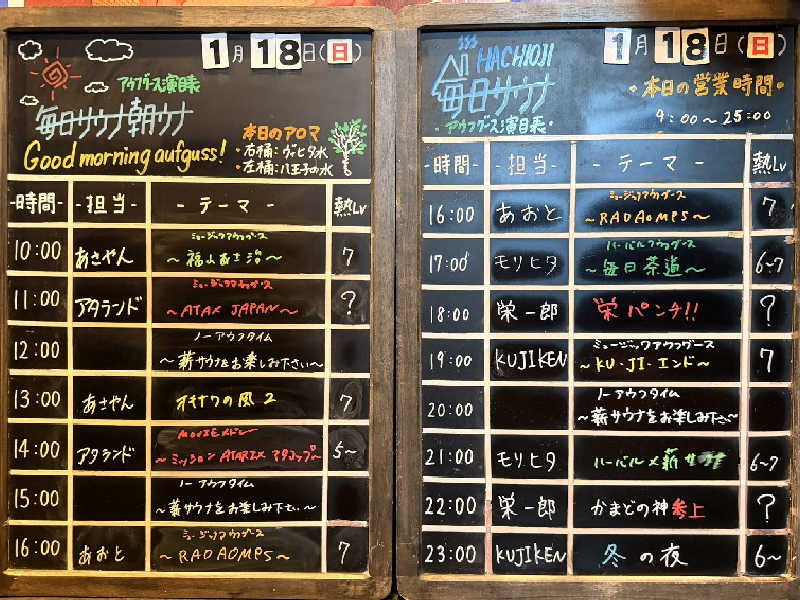 1月18日(日)
アウフグース演目表
毎日サウナ朝ウナ
Good morning aufguss!
本日のアロマ
・右桶:ヴィヒタ水
・左桶:八王子の水
-時間- -担当- -テーマ- 熱Lv
10:00 あさやん ミュージックアウフグース 7
~福山雅治~
11:00 アタランド ミュージックアウフグース ?
~ATAX JAPAN~
12:00 ノーアウフタイム
~薪サウナをお楽しみ下さい~
13:00 あさやん オキナワの風 2 7
14:00 アタランド 5~
~ミッション ATARIX アタップ~
15:00 ノーアウフタイム
~薪サウナをお楽しみ下さい~
16:00 あおと ミュージックアウフグース 7
~RADAOMPS~
HACHIOJI
毎日サウナ
・アウフグース演目表・
1月18日(日)
・本日の営業時間・
9:00~25:00
-時間- -担当- -テーマ- 熱Lv
16:00 あおと ミュージックアウフグース 7
~RADAOMPS~
17:00 モリヒタ ハーバルアウフグース 6~7
~毎日茶道~
18:00 栄一郎 栄パンチ!! ?
19:00 KUJIKEN ミュージックアウフグース 7
~KU・JI・エンド~
20:00 ノーアウフタイム
~薪サウナをお楽しみ下さい~
21:00 モリヒタ ハーバル×薪サウナ 6~7
22:00 栄一郎 かまどの神参上 ?
23:00 KUJIKEN 冬の夜 6~